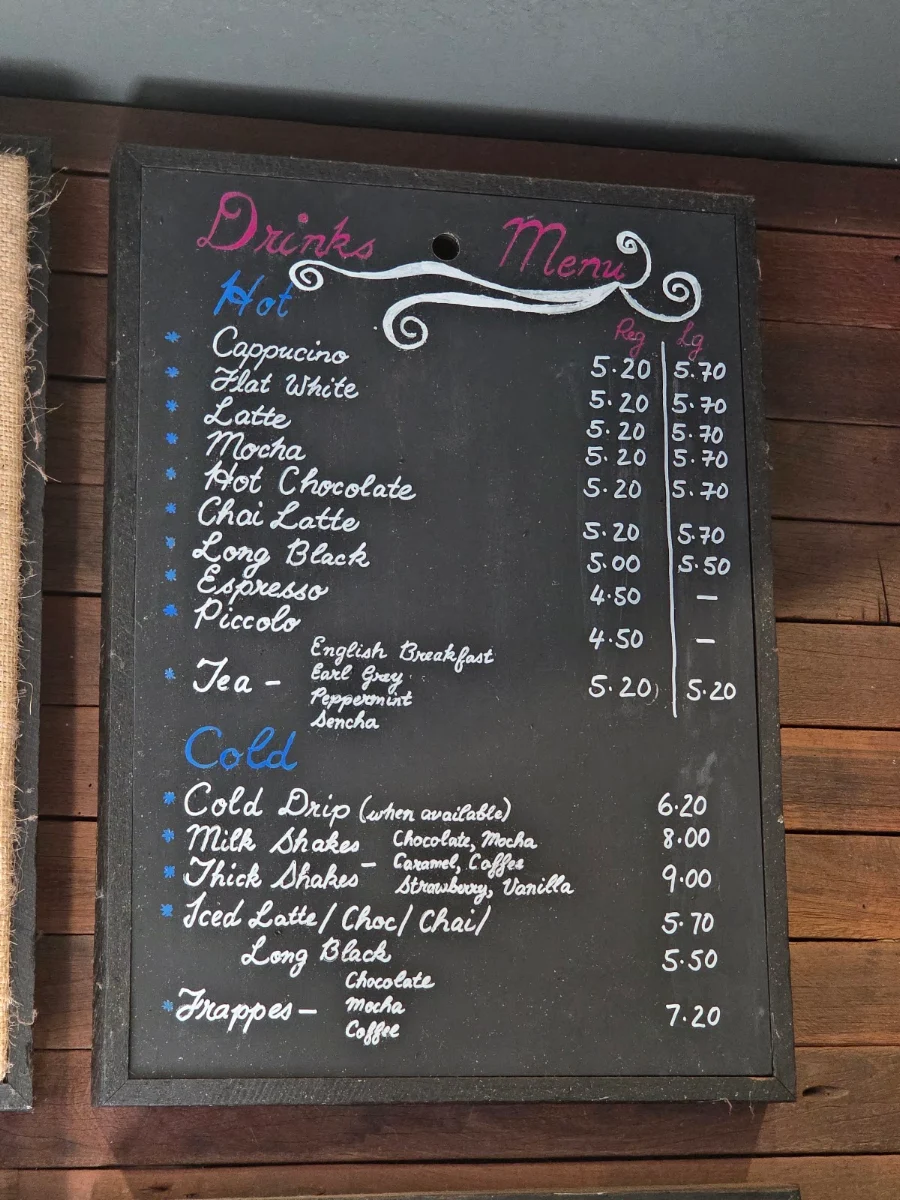 Drinks Menu
Hot
Reg Lg
* Cappucino 5.20 5.70
* Flat White 5.20 5.70
* Latte 5.20 5.70
* Mocha 5.20 5.70
* Hot Chocolate 5.20 5.70
* Chai Latte 5.20 5.70
* Long Black 5.00 5.50
* Espresso 4.50 –
* Piccolo 4.50 –
English Breakfast
* Tea – Earl Grey 5.20 5.20
Peppermint
Sencha
Cold
* Cold Drip (when available) 6.20
* Milk Shakes Chocolate, Mocha 8.00
– Caramel, Coffee
* Thick Shakes Strawberry, Vanilla 9.00
* Iced Latte/ Choc/ Chai/ 5.70
Long Black 5.50
Chocolate
* Frappes – Mocha 7.20
Coffee